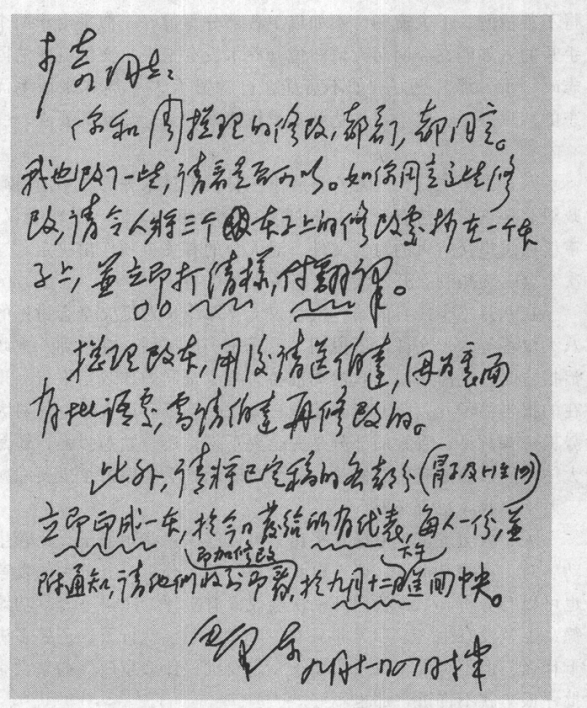 少奇同志：
你和周总理的修改，都看了，都同意。
我也改了一些，请看是否可以。如你同意这些修
改，请令人将三个本子上的修改处抄在一个本
子上，并立即打清样，付翻译。
总理改本，用后请送伯达，因为里面
有批语处，需请伯达再修改的。
此外，请将已定稿的各部分
立即印成一本，于今日发给所有代表，每人一份，并
即加修改 下午
附通知，请他们收到即看，于九月十二日送回中央。
毛泽东 九月十一日